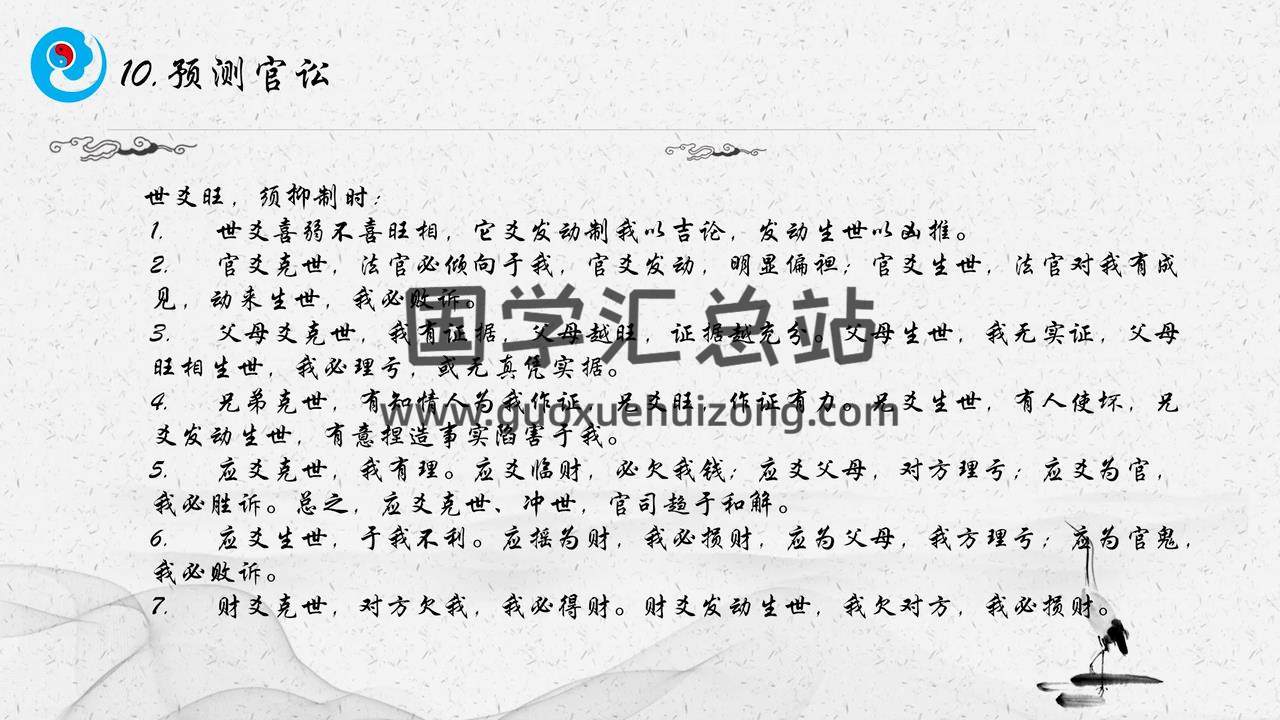 10.预测官讼
世爻旺，须抑制时：
1. 世爻喜弱不喜旺相，它爻发动制我以吉论，发动生世以凶推。
2. 官爻克世，法官必倾向于我，官爻发动，明显偏袒；官爻生世，法官对我有成
见，动来生世，我必败诉。
3. 父母爻克世，我有证据，父母越旺，证据越充分。父母生世，我无实证，父母
旺相生世，我必理亏，或无真凭实据。
4. 兄弟克世，有知情人为我作证，兄爻旺，作证有力。兄爻生世，有人使坏，兄
爻发动生世，有意捏造事实陷害于我。
5. 应爻克世，我有理。应爻临财，必欠我钱；应爻父母，对方理亏；应爻为官，
我必胜诉。总之，应爻克世、冲世，官司趋于和解。
6. 应爻生世，于我不利。应摇为财，我必损财，应为父母，我方理亏；应为官鬼，
我必败诉。
7. 财爻克世，对方欠我，我必得财。财爻发动生世，我欠对方，我必损财。
国学汇总站
www.guoxuehuizong.com